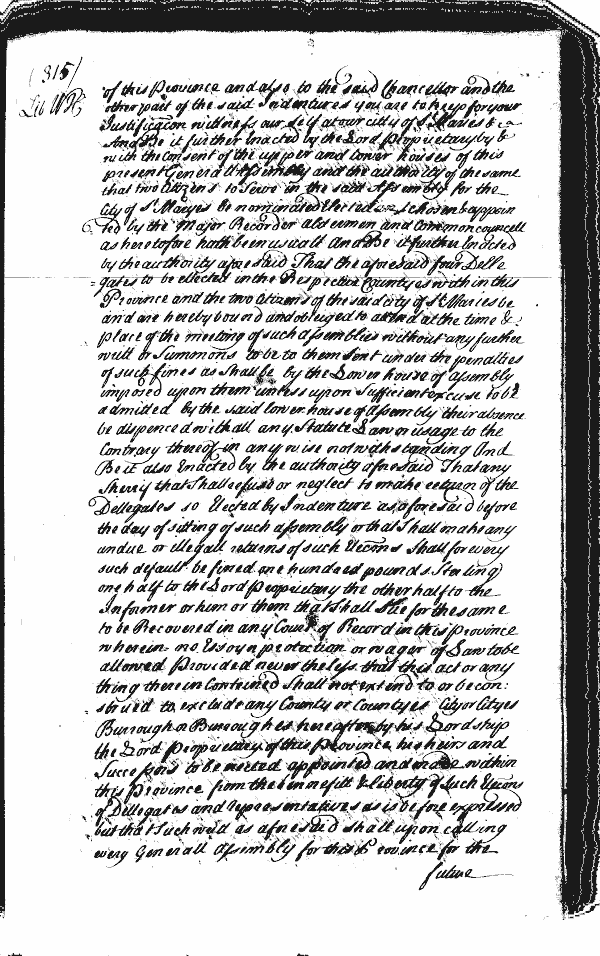 (315)
Lib WH
of this Province and also to the said Chancellor and the
other part of the said Indentures you are to keep for your
Justificacon wittness our self at our city of St Maries &
And Be it further Enacted by the Lord Proprietary by &
with the Consent of the upper and lower houses of this
present Generall Assembly and the authority of the same
that two Citizens to Serve in the said Assembly for the
City of St Maryes be nominated Elected Chosen & appoin
ted by the Major Recorder aldermen and Common councell
as heretofore hath been usuall And Be it further Enacted
by the authority afore said That the aforesaid four Delle
gates to be ellected in the Respective Countyes within this
Province and the two Citizens of the said city of St Maries be
and are hereby bound and obleiged to attend at the time &
place of the meeting of such assemblies without any further
writt or Summons to be to them Sent under the penalties
of such fines as Shall be by the Lower house of assembly
imposed upon them unless upon Sufficient excuse to be
admitted by the said lower house of assembly their absence
be dispenced withall any Statute Law or usage to the
Contrary thereof in any wise notwithstanding And
Be it also Enacted by the authority afore Said That any
Sherriff that Shall refuse or neglect to make return of the
Dellegates so Elected by Indenture as afore said before
the day of sitting of such assembly or that Shall make any
undue or illegall returns of such Elecons Shall for every
such default be fined one hundred pounds Sterling
one half to the Lord Proprietary the other half to the
Informer or him or them that Shall Sue for the same
to be Recovered in any Court of Record in this Province
wherein no Essoyn protection or wager of Law to be
allowed Provided never the less that this act or any
thing therein Contained Shall not extend to or be con:
strued to exclude any County or Countyes City or Cityes
Burrough or Burroughes hereafter by his Lordship
the Lord Proprietary of this Province his heirs and
Successors to be erected appointed and made within
this Province from the bennefitt & liberty of Such Elecons
of Dellegates and representatives as is before expressed
but that Such writt as afore said shall upon calling
every Generall Assembly for this Province for the
future